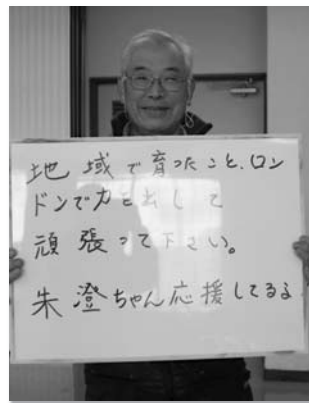 地域で育ったこと、ロン
ドンで力を出して
頑張って下さい。
朱澄ちゃん応援してるよ